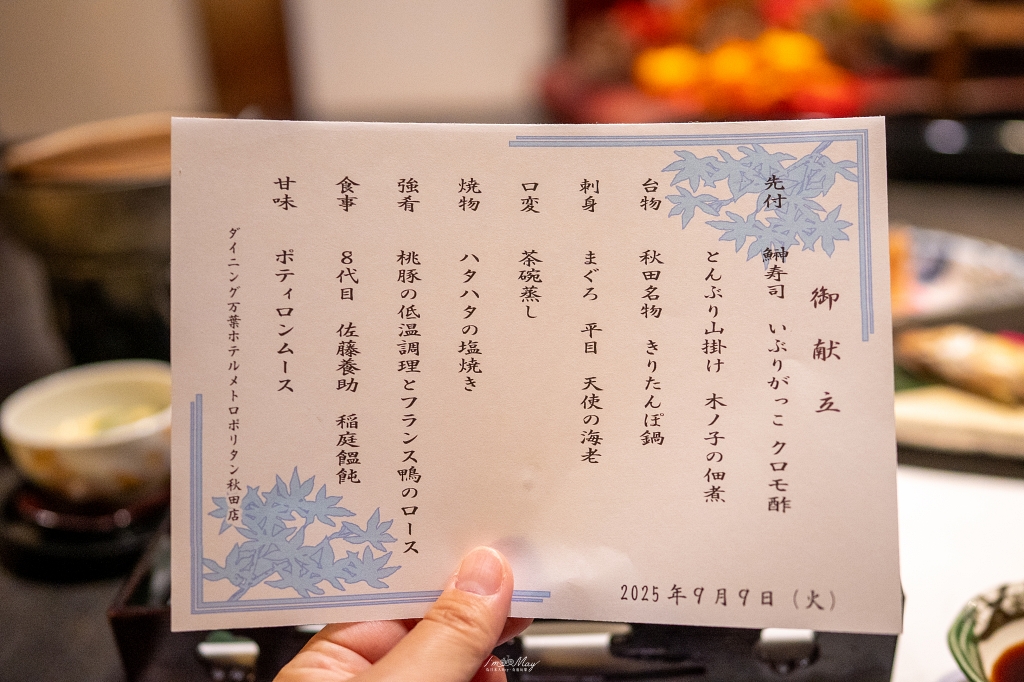 御献立
先付 鰰寿司 いぶりがっこ クロモ酢
とんぶり山掛け 木ノ子の佃煮
台物 秋田名物 きりたんぽ鍋
刺身 まぐろ 平目 天使の海老
口変 茶碗蒸し
焼物 ハタハタの塩焼き
強肴 桃豚の低温調理とフランス鴨のロース
食事 8代目 佐藤養助 稲庭饂飩
甘味 ポティロンムース
ダイニング万葉ホテルメトロポリタン秋田店
2025年9月9日（火）
I'm May